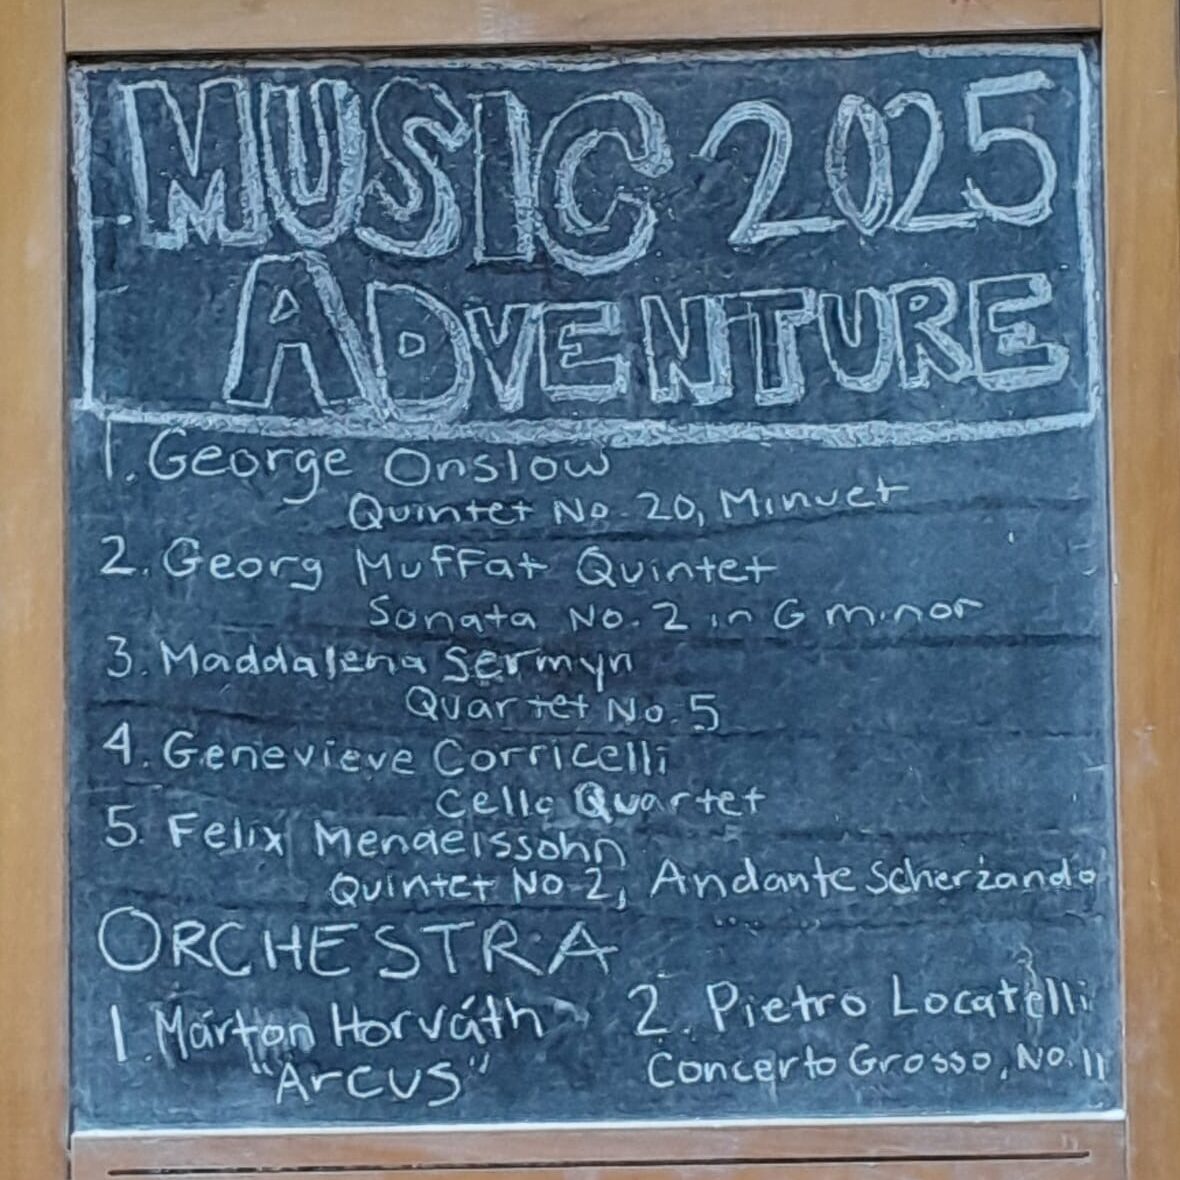 MUSIC 2025
ADVENTURE
1. George Onslow
Quintet No. 20, Minuet
2. Georg Muffat Quintet
Sonata No. 2 in G minor
3. Maddalena Sermyn
Quartet No. 5
4. Genevieve Corricelli
Cello Quartet
5. Felix Mendelssohn
Quintet No 2, Andante Scherzando
ORCHESTRA
1. Márton Horváth
"Arcus"
2. Pietro Locatelli
Concerto Grosso, No. 11